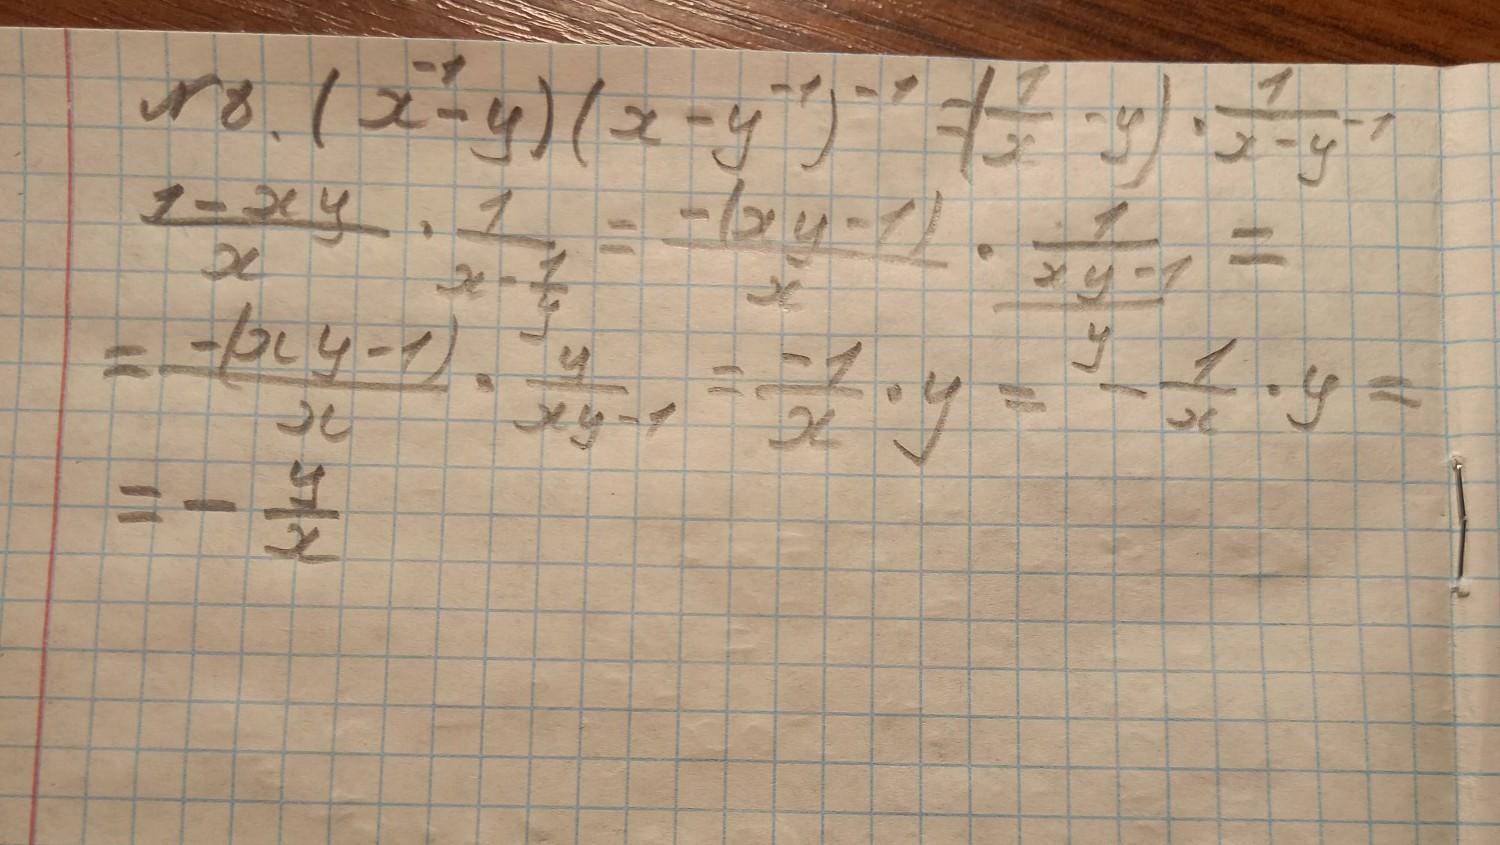 № 8. (x⁻¹ - y)(x - y⁻¹)⁻¹ = (1/x - y) · 1/(x - y⁻¹)
(1 - xy)/x · 1/(x - 1/y) = -(xy - 1)/x · 1/((xy - 1)/y) =
= -(xy - 1)/x · y/(xy - 1) = -1/x · y = - 1/x · y =
= - y/x